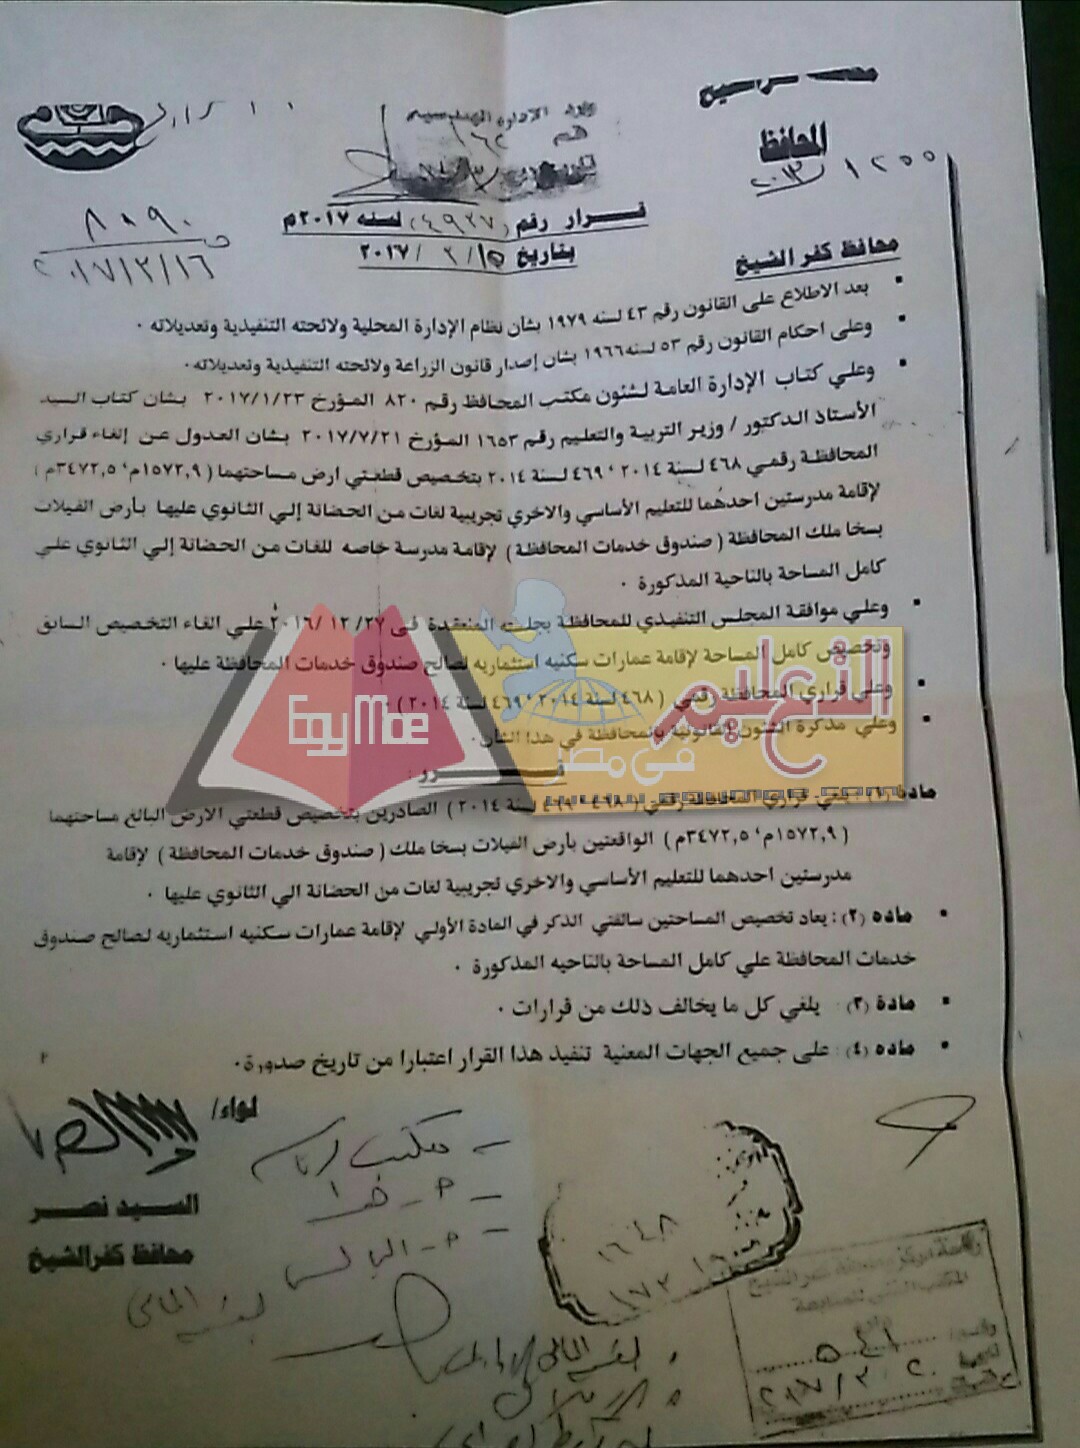 المحافظ
١٢٥٥
قرار رقم (٤٩٢٧) لسنه ٢٠١٧م
بتاريخ ١٥/ ٢ /٢٠١٧
٨٠٩٠
٢٠١٧/٢/١٦
محافظ كفر الشيخ
بعد الاطلاع على القانون رقم ٤٣ لسنه ١٩٧٩ بشان نظام الإدارة المحلية ولائحته التنفيذية وتعديلاته ٠
وعلى احكام القانون رقم ٥٣ لسنه ١٩٦٦ بشان إصدار قانون الزراعة ولائحته التنفيذية وتعديلاته٠
وعلي كتاب الإدارة العامة لشئون مكتب المحافظ رقم ٨٢٠ المؤرخ ٢٠١٧/١/٢٣ بشان كتاب السيد
الأستاذ الدكتور / وزير التربية والتعليم رقم ١٦٥٣ المؤرخ ٢٠١٧/٧/٢١ بشان العدول عن إلغاء قراري
المحافظة رقمي ٤٦٨ لسنة ٢٠١٤ ، ٤٦٩ لسنة ٢٠١٤ بتخصيص قطعتي ارض مساحتهما (١٥٧٢,٩م ، ٣٤٧٢,٥م )
لإقامة مدرستين احدهما للتعليم الأساسي والاخري تجريبية لغات من الحضانة إلي الثانوي عليها بأرض الفيلات
بسخا ملك المحافظة ( صندوق خدمات المحافظة ) لإقامة مدرسة خاصه للغات من الحضانة إلي الثانوي علي
كامل المساحة بالناحية المذكورة ٠
وعلي موافقة المجلس التنفيذي للمحافظة بجلسته المنعقدة فى ٢٧/ ١٢ /٢٠١٦ علي الغاء التخصيص السابق
وتخصيص كامل المساحة لإقامة عمارات سكنيه استثماريه لصالح صندوق خدمات المحافظة عليها ٠
وعلي قراري المحافظة رقمي ( ٤٦٨ لسنة ٢٠١٤ ، ٤٦٩ لسنة ٢٠١٤ ) ٠
وعلي مذكرة الشئون القانونية بالمحافظة في هذا الشأن ٠
التعليم
فى مصر
EgyMoe
قـــــرر :
مادة (١) : يلغي قراري المحافظة رقمي ( ٤٦٨ ، ٤٦٩ لسنة ٢٠١٤ ) الصادرين بتخصيص قطعتي الارض البالغ مساحتهما
( ١٥٧٢,٩م ، ٣٤٧٢,٥م ) الواقعتين بأرض الفيلات بسخا ملك ( صندوق خدمات المحافظة ) لإقامة
مدرستين احدهما للتعليم الأساسي والاخري تجريبية لغات من الحضانة الي الثانوي عليها ٠
ماده (٢) : يعاد تخصيص المساحتين سالفتي الذكر في المادة الأولي لإقامة عمارات سكنيه استثماريه لصالح صندوق
خدمات المحافظة علي كامل المساحة بالناحيه المذكورة ٠
مادة (٣) يلغي كل ما يخالف ذلك من قرارات ٠
ماده (٤) : على جميع الجهات المعنية تنفيذ هذا القرار اعتبارا من تاريخ صدورة٠
لواء/
السيد نصر
محافظ كفرالشيخ
١٦٤٨